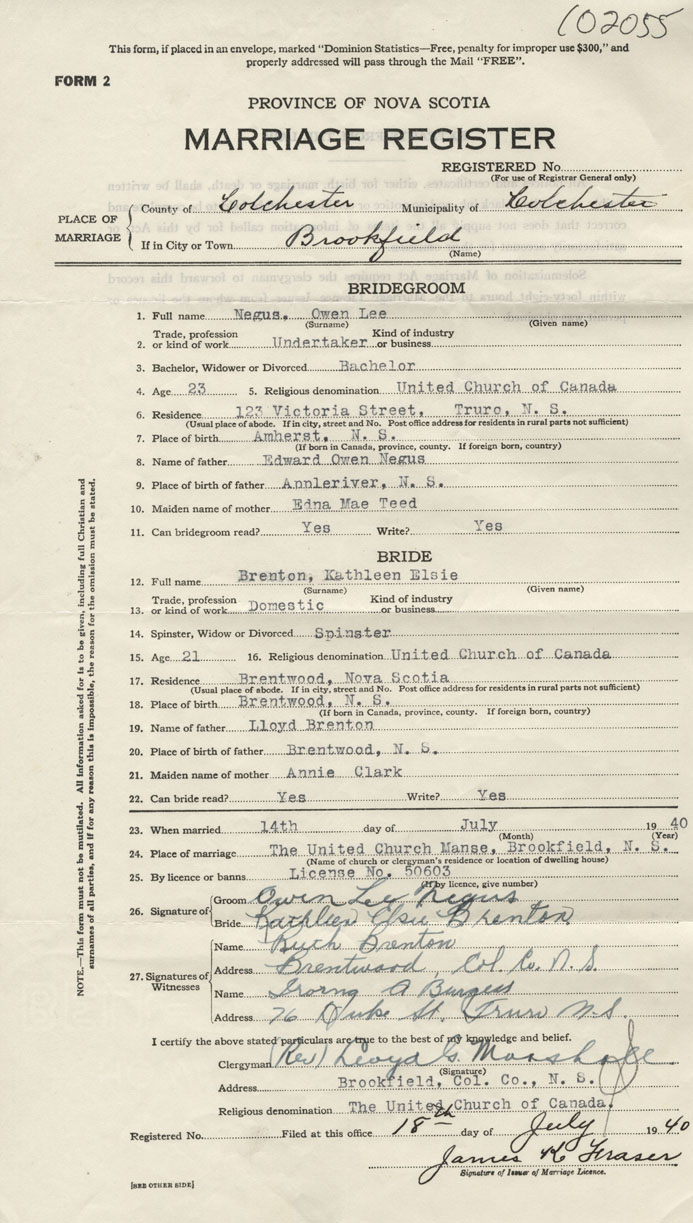 102055
This form, if placed in an envelope, marked "Dominion Statistics—Free, penalty for improper use $300," and
properly addressed will pass through the Mail "FREE".
FORM 2
PROVINCE OF NOVA SCOTIA
MARRIAGE REGISTER
REGISTERED No.
(For use of Registrar General only)
PLACE OF MARRIAGE
County of Colchester Municipality of Colchester
If in City or Town Brookfield
(Name)
BRIDEGROOM
1. Full name Negus, Owen Lee
(Surname) (Given name)
Trade, profession Kind of industry
2. or kind of work Undertaker or business
3. Bachelor, Widower or Divorced Bachelor
4. Age 23 5. Religious denomination United Church of Canada
6. Residence 123 Victoria Street, Truro, N. S.
(Usual place of abode. If in city, street and No. Post office address for residents in rural parts not sufficient)
7. Place of birth Amherst, N. S.
(If born in Canada, province, county. If foreign born, country)
8. Name of father Edward Owen Negus
9. Place of birth of father Annleriver, N. S.
10. Maiden name of mother Edna Mae Teed
11. Can bridegroom read? Yes Write? Yes
BRIDE
12. Full name Brenton, Kathleen Elsie
(Surname) (Given name)
Trade, profession Kind of industry
13. or kind of work Domestic or business
14. Spinster, Widow or Divorced Spinster
15. Age 21 16. Religious denomination United Church of Canada
17. Residence Brentwood, Nova Scotia
(Usual place of abode. If in city, street and No. Post office address for residents in rural parts not sufficient)
18. Place of birth Brentwood, N. S.
(If born in Canada, province, county. If foreign born, country)
19. Name of father Lloyd Brenton
20. Place of birth of father Brentwood, N. S.
21. Maiden name of mother Annie Clark
22. Can bride read? Yes Write? Yes
23. When married 14th day of July 1940
(Month) (Year)
24. Place of marriage The United Church Manse, Brookfield, N. S.
(Name of church or clergyman's residence or location of dwelling house)
25. By licence or banns License No. 50603
(If by licence, give number)
26. Signature of
Groom Owen Lee Negus
Bride Kathleen Elsie Brenton
27. Signatures of Witnesses
Name Ruth Brenton
Address Brentwood, Col. Co. N. S.
Name Irving A Burgess
Address 76 Duke St. Truro N.S.
I certify the above stated particulars are true to the best of my knowledge and belief.
Clergyman (Rev) Lloyd G. Marshall
(Signature)
Address Brookfield, Col. Co., N. S.
Religious denomination The United Church of Canada.
Registered No. Filed at this office 18th day of July 1940
James K Fraser
Signature of Issuer of Marriage Licence.
[SEE OTHER SIDE]
NOTE.—This form must not be mutilated. All information asked for is to be given, including full Christian and
surnames of all parties, and if for any reason this is impossible, the reason for the omission must be stated.